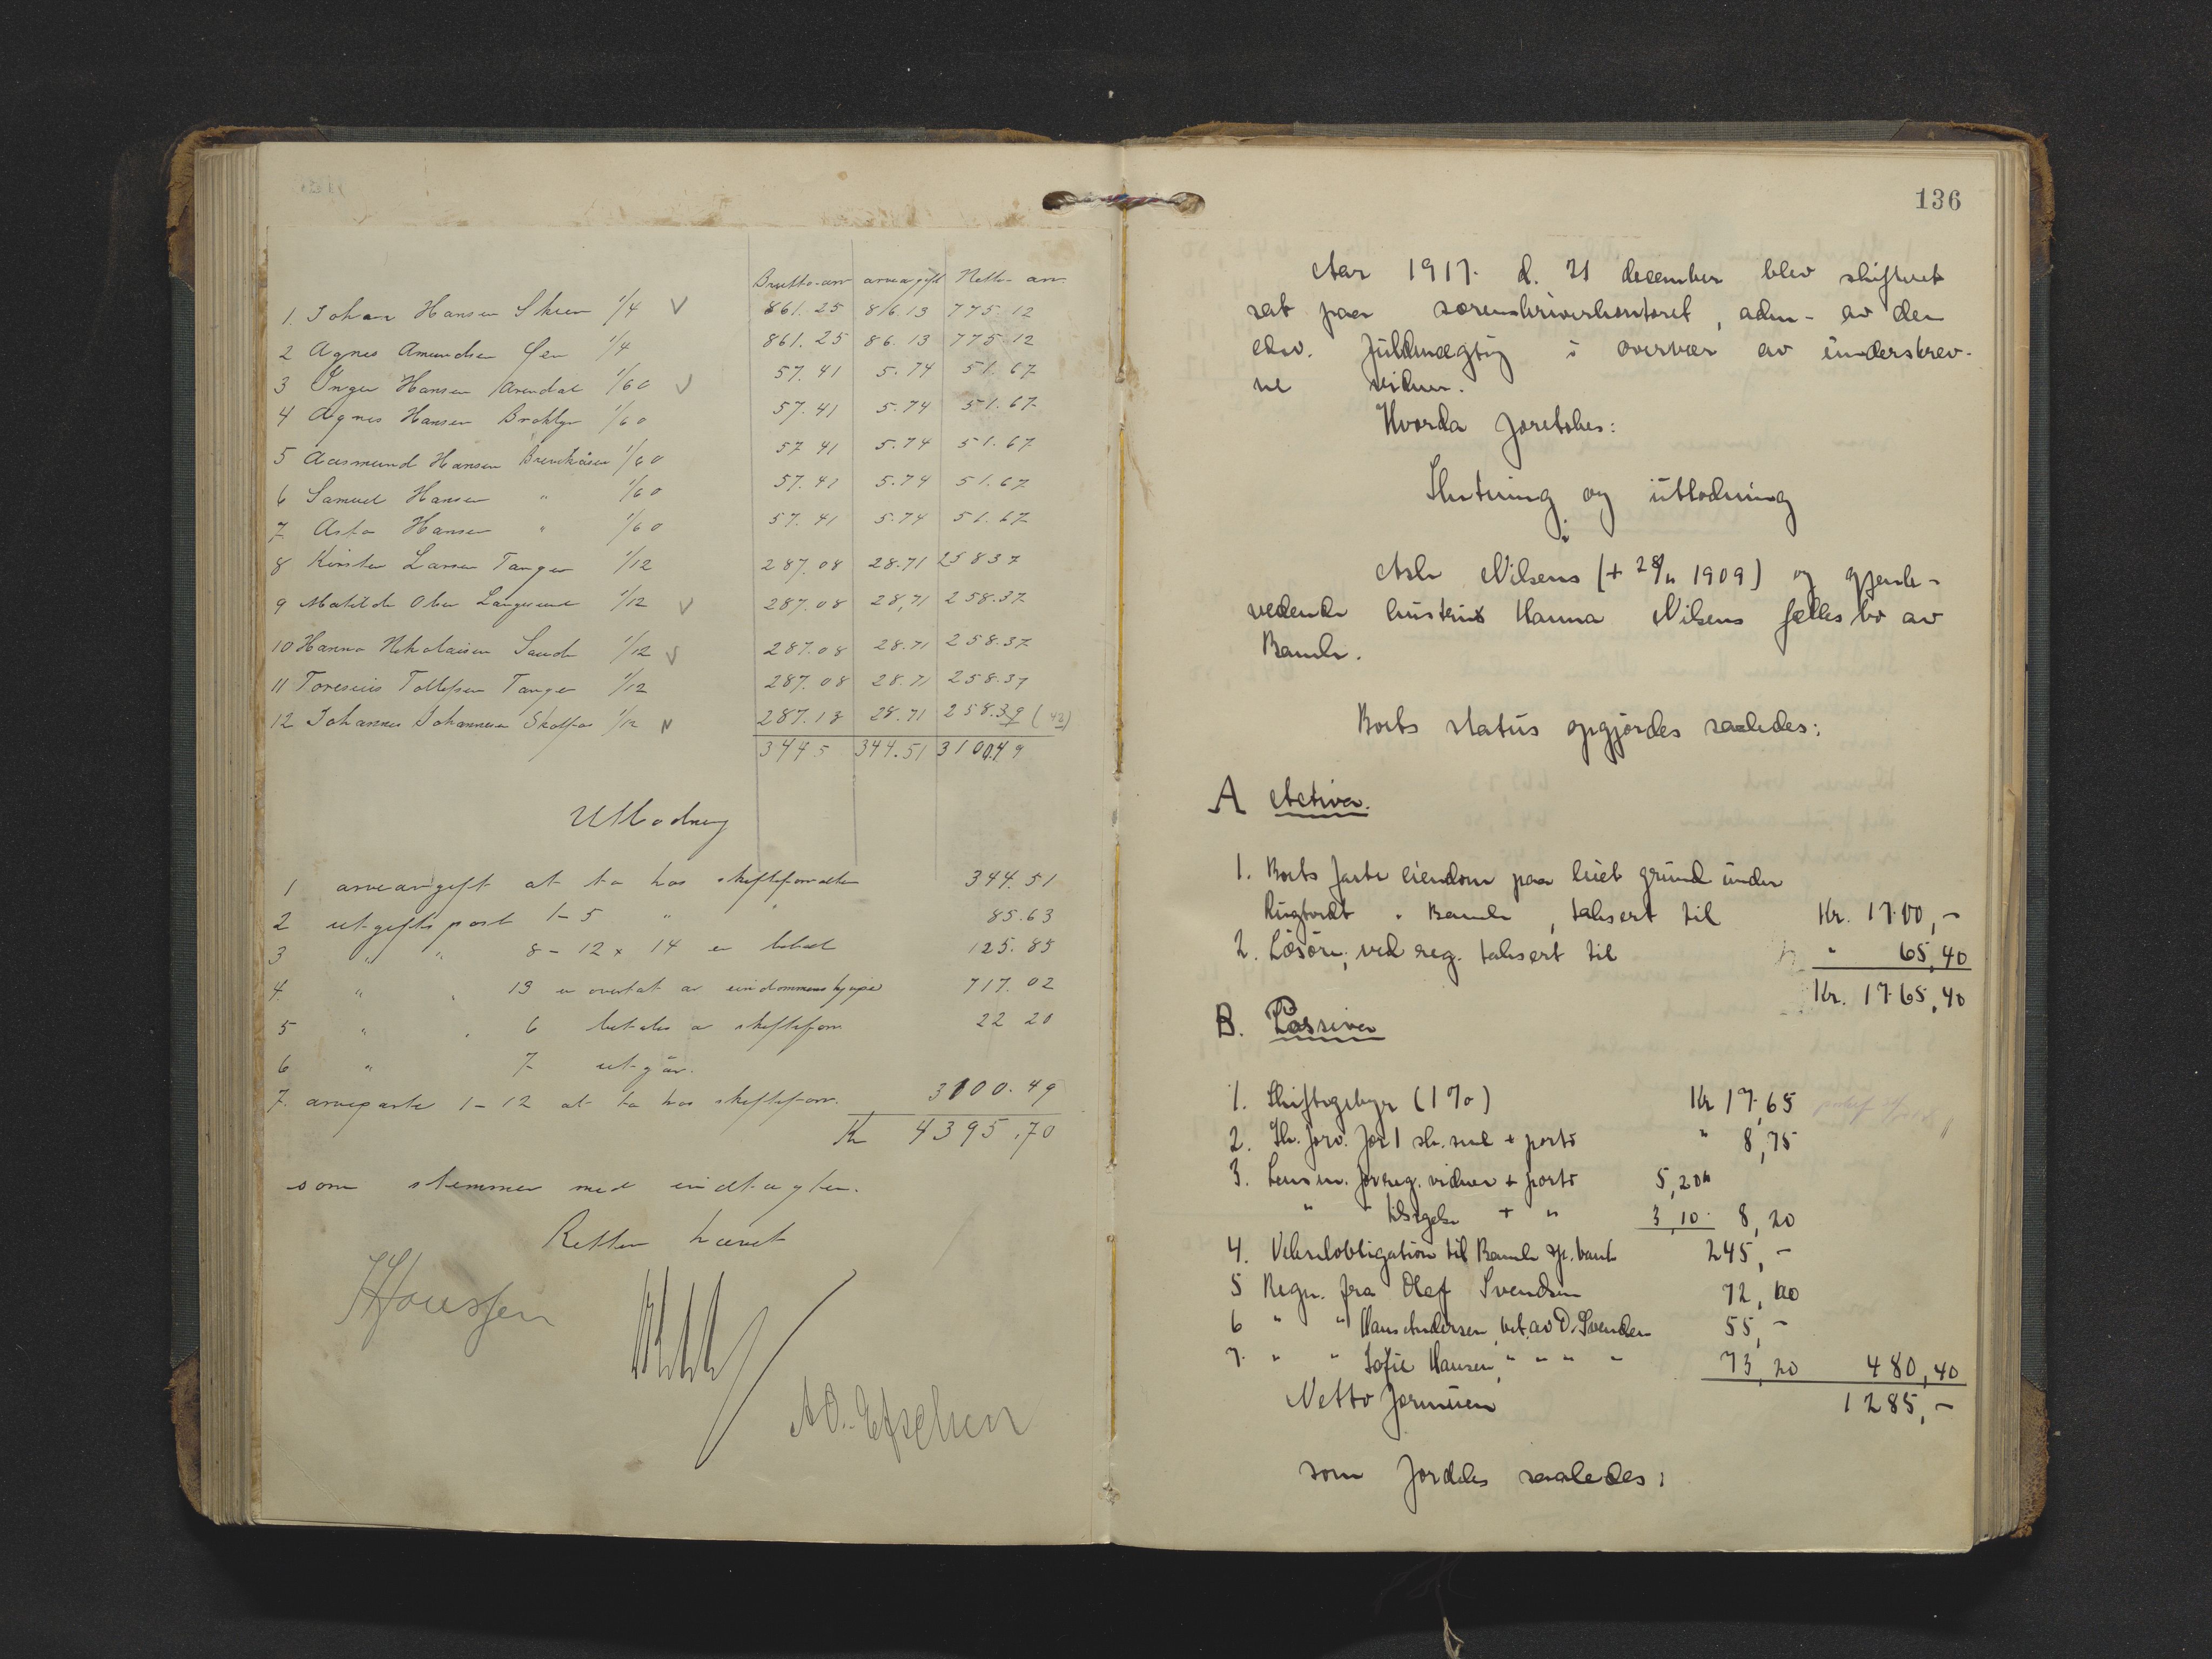 Brutto-arv arveavgift Netto-arv.
1. Johan Hansen Skien 1/4 V 861.25 86.13 775.12
2 Agnes Amundsen Øen 1/4 861.25 86.13 775.12
3 Inger Hansen Arendal 1/60 V 57.41 5.74 51.67
4 Agnes Hansen Broklyn 1/60 57.41 5.74 51.67
5 Aasmund Hansen 1/60 57.41 5.74 51.67
6 Samuel Hansen " 1/60 57.41 5.74 51.67
7 Asta Hansen " 1/60 57.41 5.74 51.67
8 Kirsten Larsen Tangen 1/12 287.08 28.71 258 37
9 Matilde Olsen Langesund 1/12 V 287.08 28,71 258.37
10 Hanna Nikolaisen Sande 1/12 V 287.08 28.71 258.37
11 Toresius Tollefsen Tangen 1/12 287.08 28.71 258.37
12 Johannes Johannesen Skotfos 1/12 287.18 28.71 258.39 (42)
3445 344.51 3100.49
Utlodning
1 arveavgift at ta hos skifteforvalter 344.51
2 utgiftspost 1-5 " " 85.63
3 " " 8-12 x 14 er betalt 125.85
4 " " 13 er overtat av eiendommens kjøper 717.02
5 " " 6 betales av skifteforv. 22 20
6 " 7 utgår.
7. arveparter 1-12 at ta hos skifteforv. 3100.49
Kr 4395.70
som stemmer med indtægten.
Retten hævet
136
Aar 1917. d. 21 december blev skifteret
sat paa sorenskriverkontoret, adm. av den
edsv. fuldmægtig i overvær av underskrev-
ne vidner.
Hvorda foretokes:
Slutning og utlodning
i
Asle Nilsens (+ 28/11 1909) og gjenle-
vedende hustrus Hanna Nilsens fælles bo av
Bamle.
Boets status opgjordes saaledes:
A Activa.
1. Boets faste eiendom paa leiet grund under
Rugtvedt i Bamle, taksert til Kr. 1700,-
2. Løsøre, ved reg. taksert til " 65,40
Kr. 1765,40
B. Passiva
1. Skiftegebyr (1%) Kr 17,65
2. Sk. forv. for 1 sk. sml + porto " 8,75
3. Lensm. for reg. vidner + porto 5,20
" " tilsigelse + " 3,10 8,20
4. Vekselobligation til Bamle sp. bank 245,-
5 Regn. fra Olaf Svendsen 72,60
6 " " Hans Andersen, bet. av O. Svendsen 55,-
7. " " Sofie Hansen, " " " " 73,20 480,40
Netto formuen 1285,-
som fordeles saaledes: